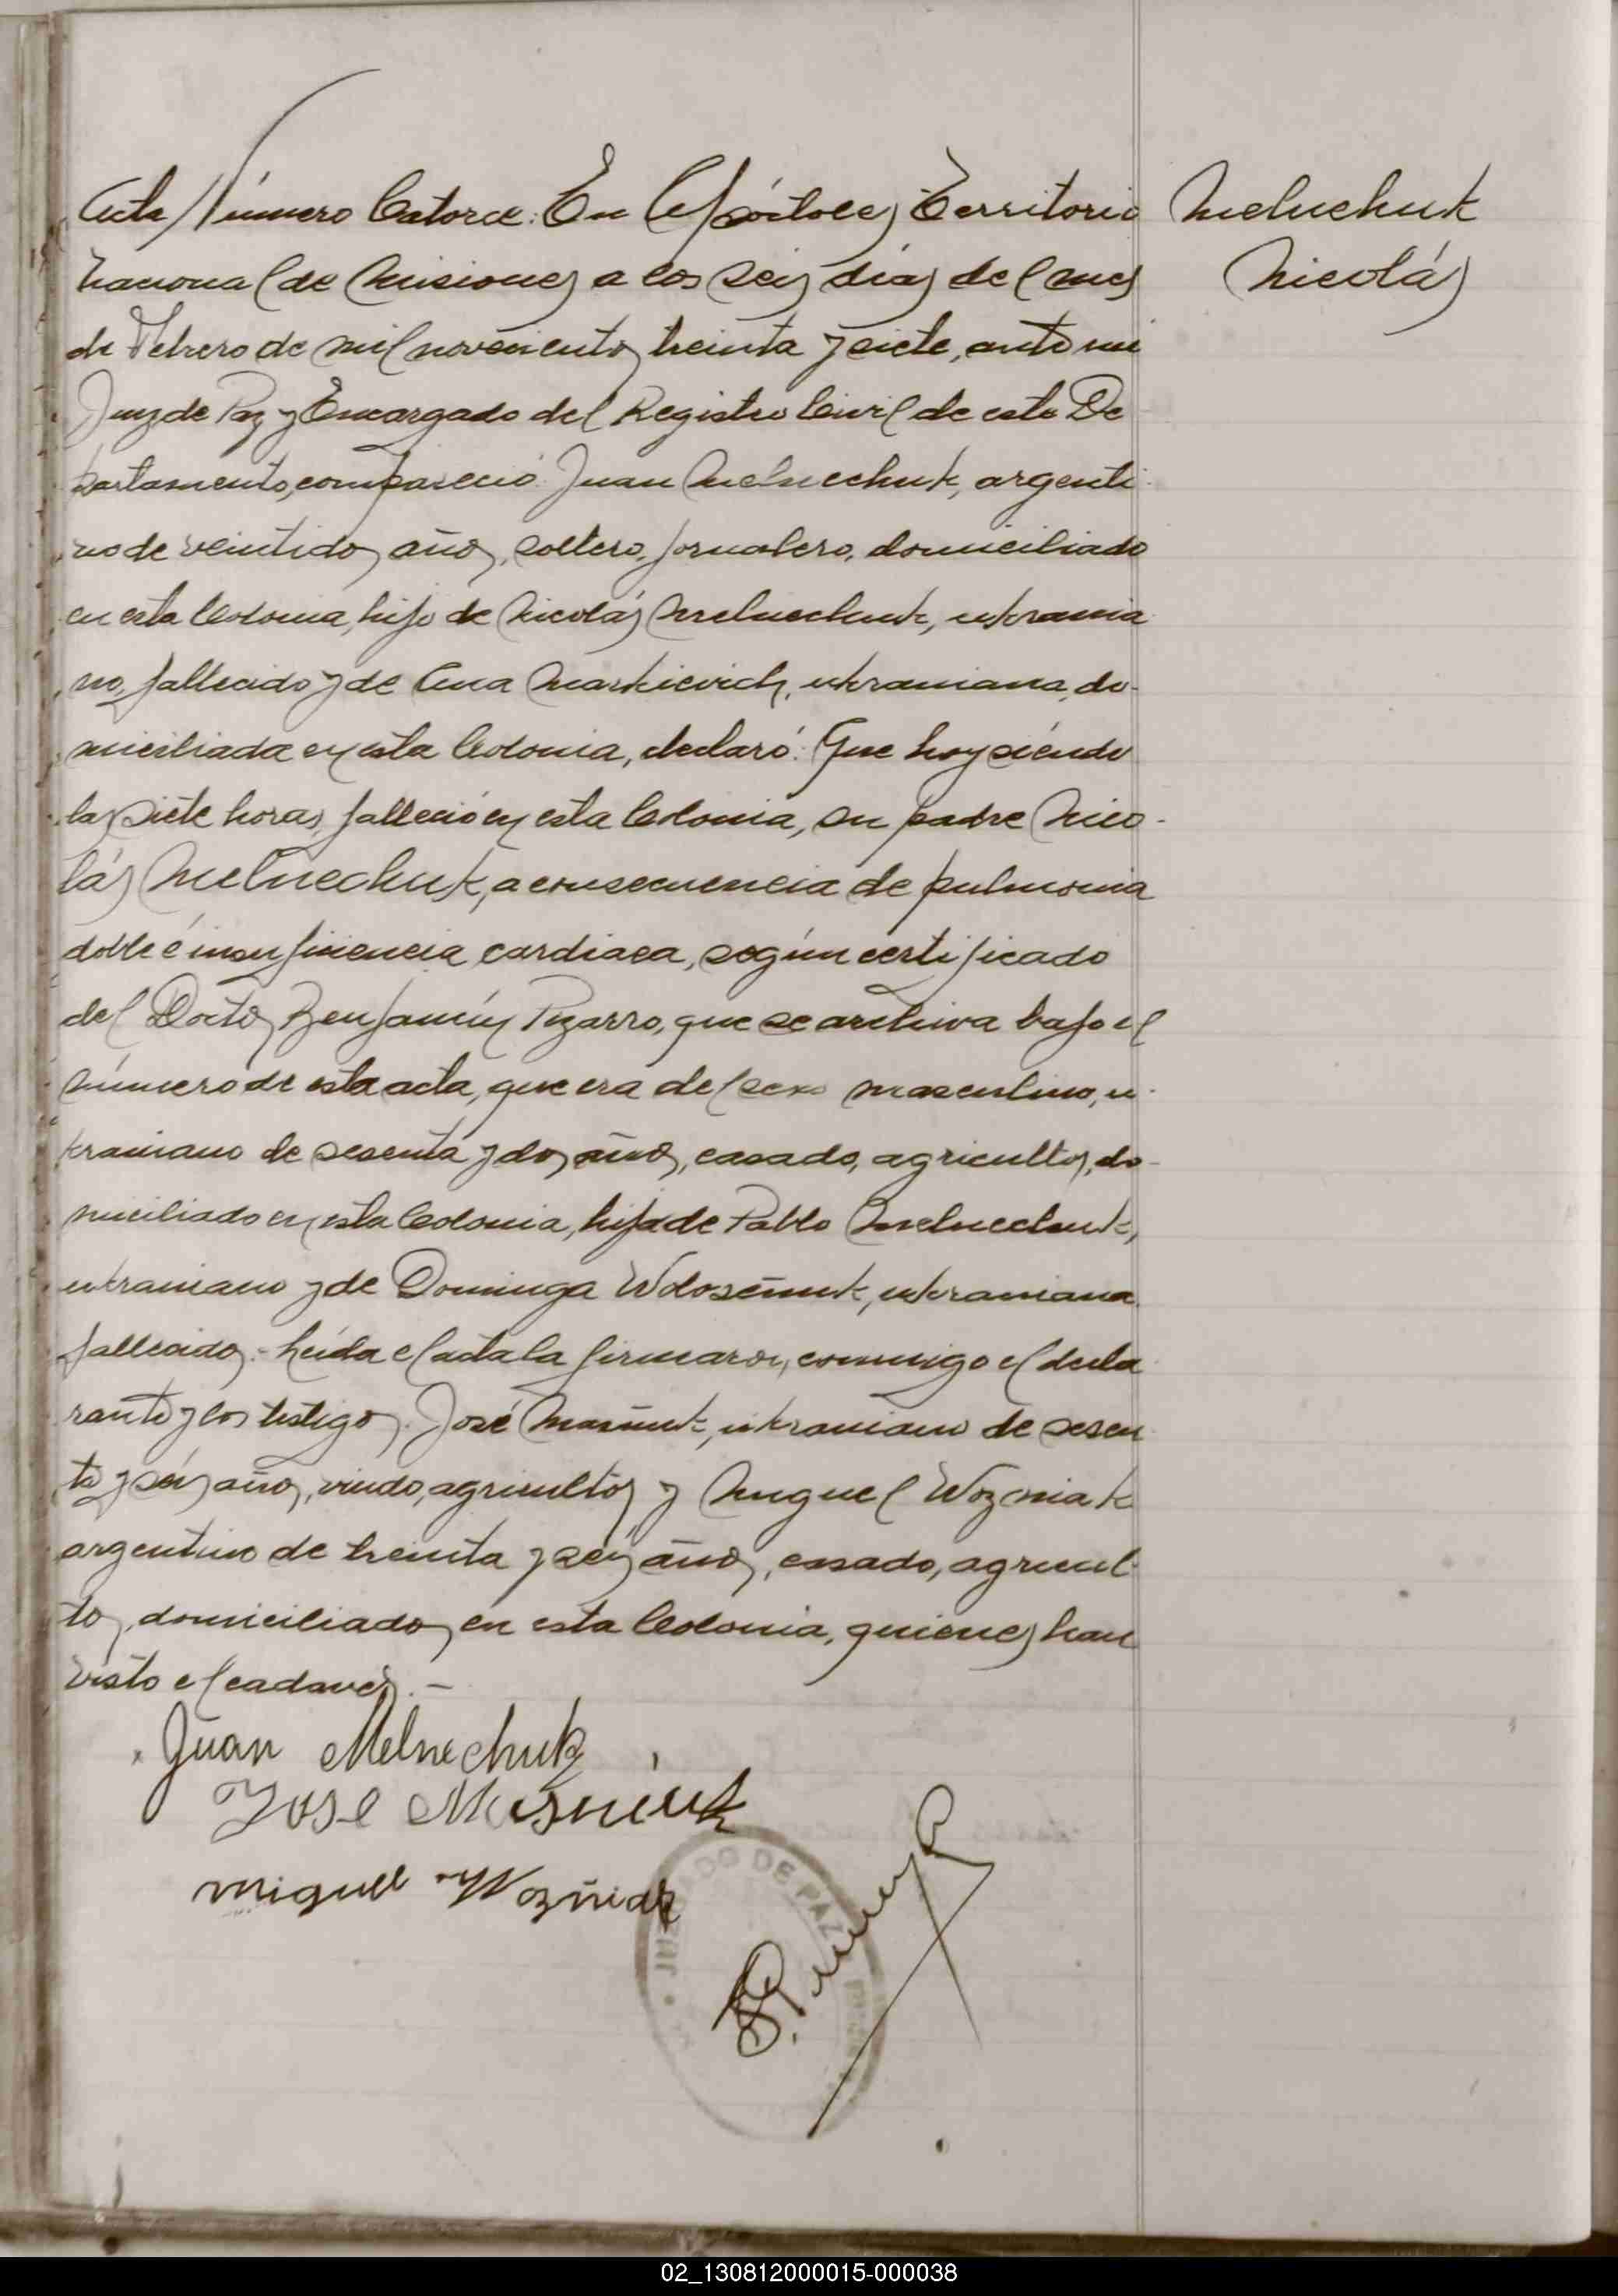 Acta Número Catorce: En Apóstoles, Territorio
Nacional de Misiones a los seis días del mes
de Febrero de mil novecientos treinta y siete, ante mi
Juez de Paz y Encargado del Registro Civil de este De
partamento, compareció: Juan Melnechuk, argenti
no de veintidos años, soltero, jornalero, domiciliado
en esta Colonia, hijo de Nicolás Melnechuk, ukrania
no, fallecido y de Ana Markievich, ukraniana, do-
miciliada en esta Colonia, declaró: Que hoy siendo
las siete horas, falleció en esta Colonia, su padre Nico-
lás Melnechuk, a consecuencia de pulmonia
doble é insuficiencia cardiaca, según certificado
del Doctor Benjamín Pizarro, que se archiva bajo el
número de esta acta, que era del sexo masculino, u-
kraniano de sesenta y dos años, casado, agricultor, do-
miciliado en esta Colonia, hijo de Pablo Melnechuk,
ukraniano y de Dominga ukraniana
fallecidos.- Leída el acta la firmaron, conmigo el decla
rante y los testigos. José Masniuk, ukraniano de sesen
ta y seis años, viudo, agricultor y Miguel Wozniak
argentino de treinta y seis años, casado, agricul-
tor, domiciliados en esta Colonia, quienes han
visto el cadaver.-
Melnechuk
Nicolás
Juan Melnechuk
Jose Masniuk
Miguel Wozñiak
JUZGADO DE PAZ
02_130812000015-000038